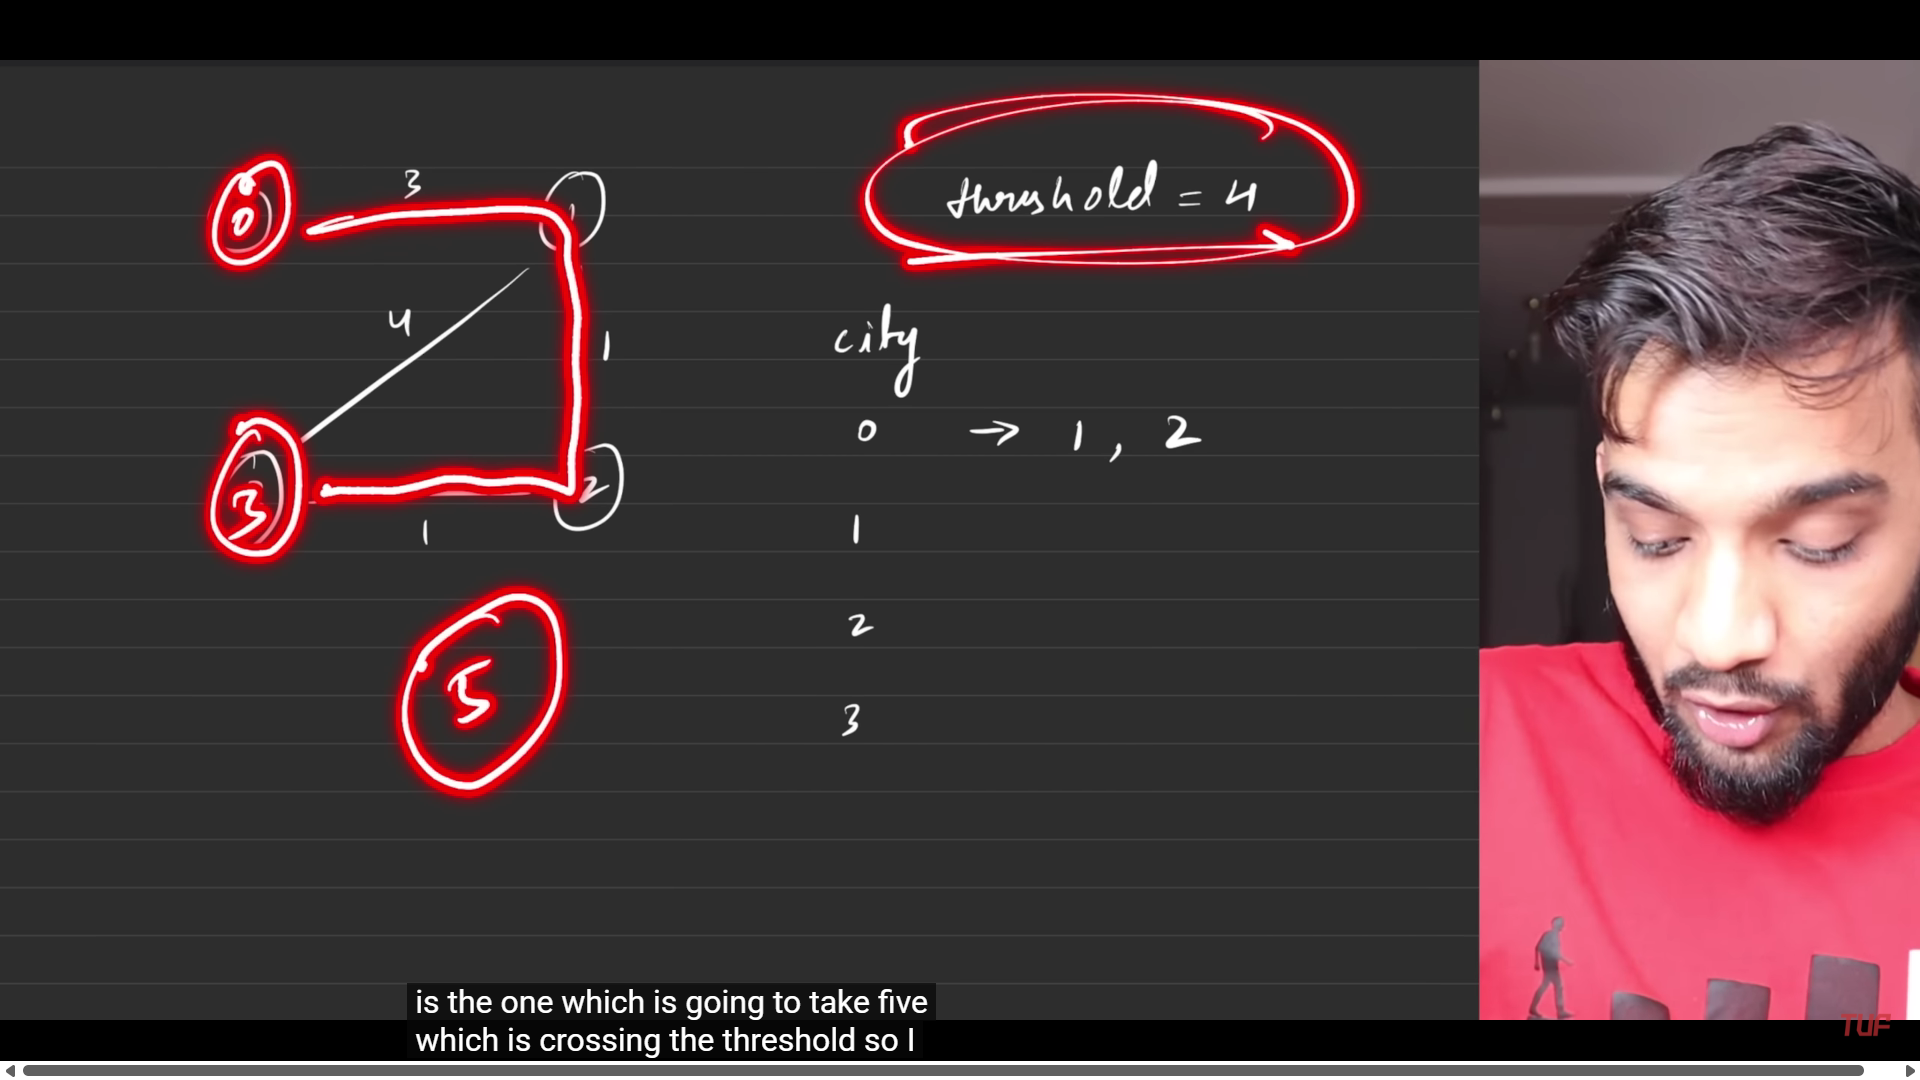 threshold = 4
0
3
1
4
1
city
0 → 1, 2
3
2
1
1
2
5
3
is the one which is going to take five
which is crossing the threshold so I
TUF